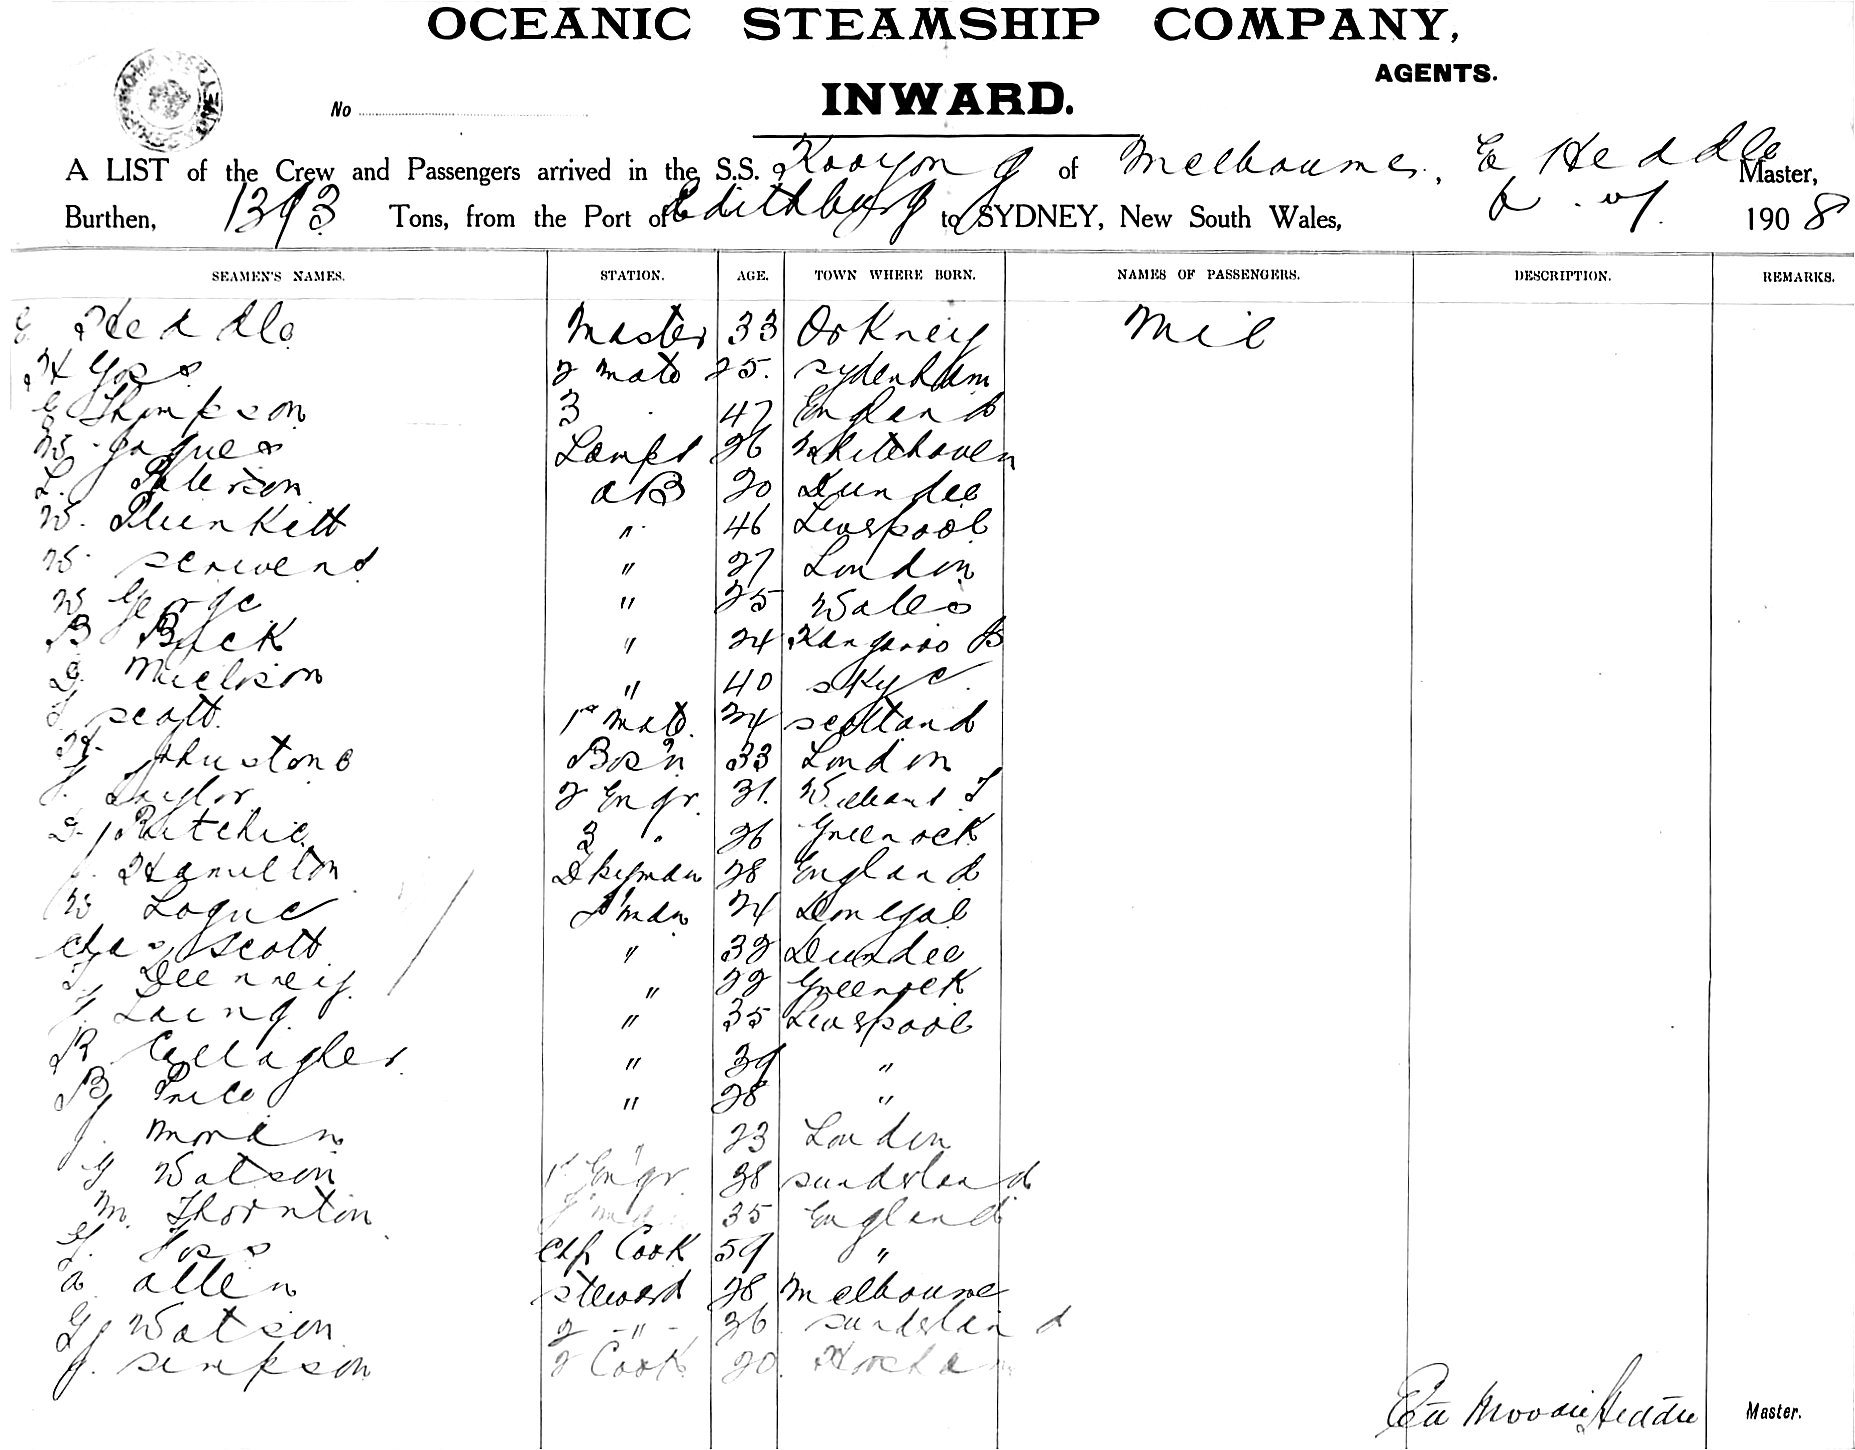 OCEANIC STEAMSHIP COMPANY,
AGENTS.
INWARD.
No
A LIST of the Crew and Passengers arrived in the S.S. Kooyong of Melbourne, E Heddle Master,
Burthen, 1393 Tons, from the Port of Edithburg to SYDNEY, New South Wales, 1908
SEAMEN'S NAMES. STATION. AGE. TOWN WHERE BORN. NAMES OF PASSENGERS. DESCRIPTION. REMARKS.
E Heddle Master 33 Orkney Nil
H 2 Mate 25. Sydenham
E Thompson 3 " 47 England
W. Jaques Lamps 26 Whitehaven
L. Paterson AB 20 Dundee
W. Plunkett " 46 Liverpool
W. Scrivens " 27 London
W George " 25 Wales
B Buck " 24 Kangaroo
D. Nicolson " 40 Skye
J Scott 1st Mate 24 Scotland
H. Johnstone Bos'n 33 London
J. Taylor 2 Engr. 31. Williams T
D. Ritchie 3 " 26 Greenock
J. Hamilton Dkyman 28 England
W Logue F'man 24 Donegal
Chas Scott " 32 Dundee
J Deenney " 22 Greenock
J. Laing " 35 Liverpool
R Gallagher " 39 "
B Price " 28 "
J. Moran " 23 London
G Watson 1st Engr. 38 Sunderland
M. Thornton F'man 35 England
G. Chf Cook 59 "
A Allen Steward 28 Melbourne
G Watson 2 -"- 26 Sunderland
J. Simpson 2 Cook 20 Horsham
Moodie Heddle Master.